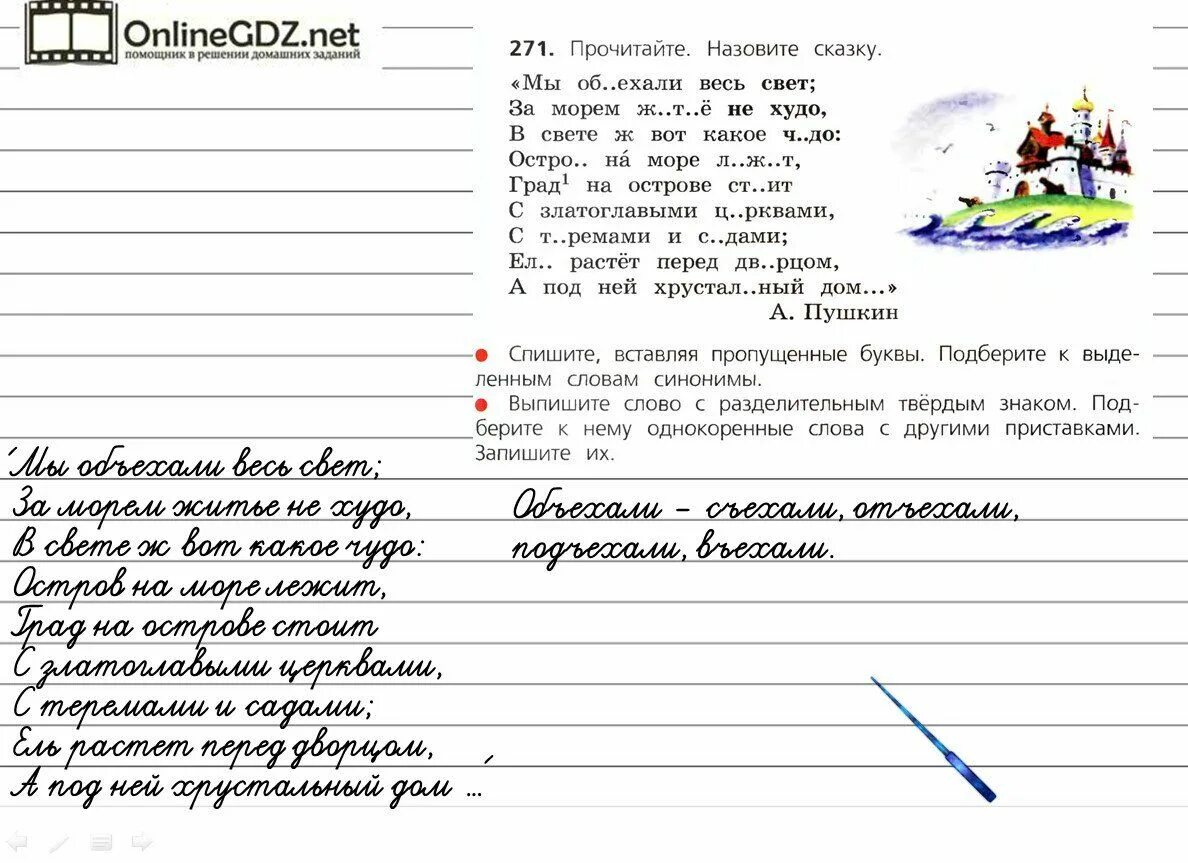 OnlineGDZ.net
помощник в решении домашних заданий
271. Прочитайте. Назовите сказку.
«Мы об..ехали весь свет;
За морем ж..т..ё не худо,
В свете ж вот какое ч..до:
Остро.. на́ море л..ж..т,
Град¹ на острове ст..ит
С златоглавыми ц..рквами,
С т..ремами и с..дами;
Ел.. растёт перед дв..рцом,
А под ней хрустал..ный дом...»
А. Пушкин
Спишите, вставляя пропущенные буквы. Подберите к выде-
ленным словам синонимы.
Выпишите слово с разделительным твёрдым знаком. Под-
берите к нему однокоренные слова с другими приставками.
Запишите их.
Мы объехали весь свет;
За морем житье не худо,
В свете ж вот какое чудо:
Остров на море лежит,
Град на острове стоит
С златоглавыми церквами,
С теремами и садами;
Ель растет перед дворцом,
А под ней хрустальный дом ...
Объехали - съехали, отъехали,
подъехали, въехали.